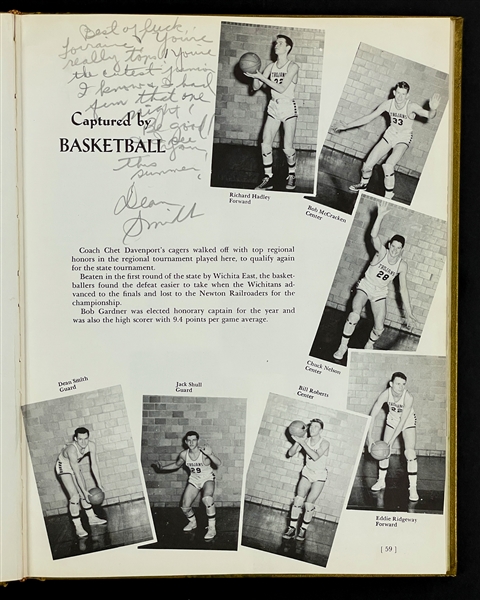 Best of luck,
Lorraine! You're
really tops! You're
the cutest junior
I know & I had
fun that one
night!
Be good!
See
you
this
summer,
Dean
Smith
Captured by
BASKETBALL
Coach Chet Davenport's cagers walked off with top regional
honors in the regional tournament played here, to qualify again
for the state tournament.
Beaten in the first round of the state by Wichita East, the basket-
ballers found the defeat easier to take when the Wichitans ad-
vanced to the finals and lost to the Newton Railroaders for the
championship.
Bob Gardner was elected honorary captain for the year and
was also the high scorer with 9.4 points per game average.
Richard Hadley
Forward
Bob McCracken
Center
Chuck Nelson
Center
Dean Smith
Guard
Jack Shull
Guard
Bill Roberts
Center
Eddie Ridgeway
Forward
TROJANS
33
TROJANS
28
TROJANS
29
[ 59 ]